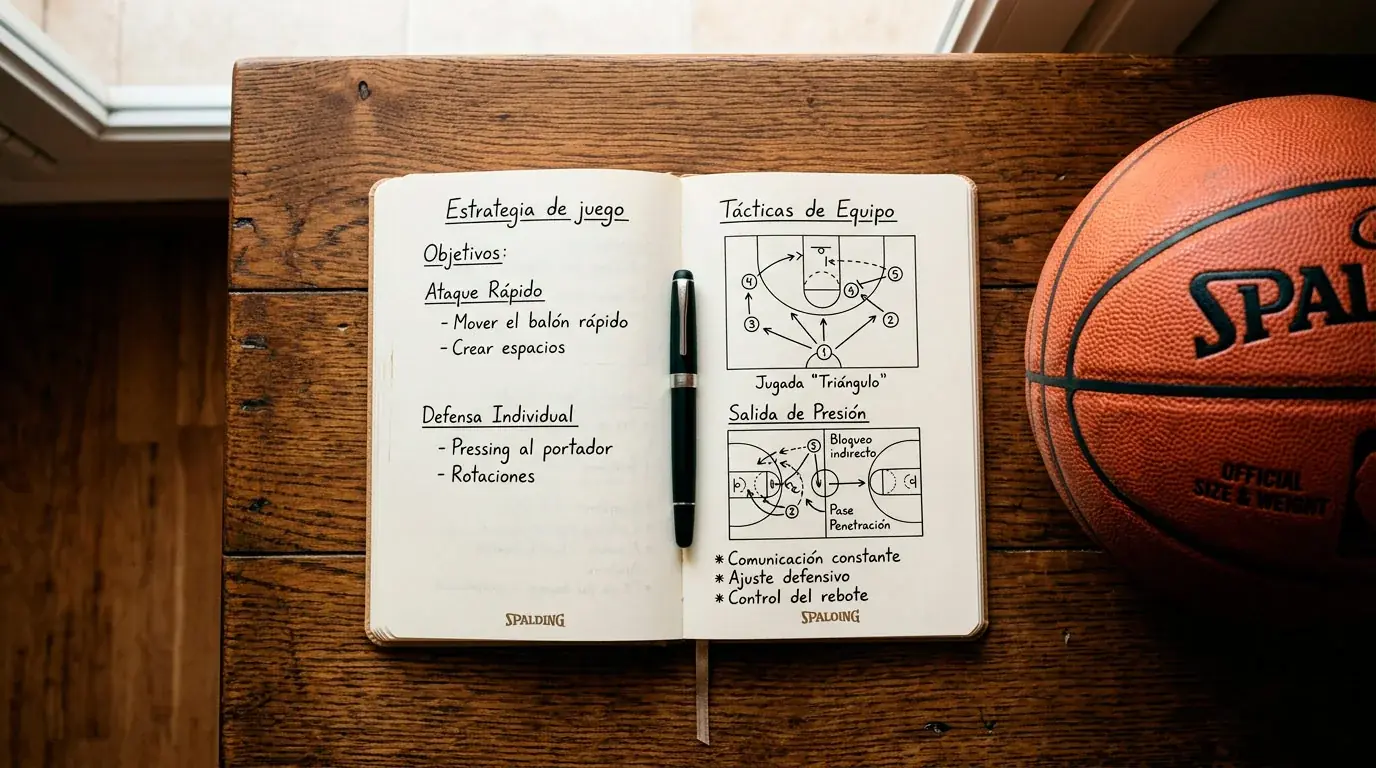 Estrategia de juego
Objetivos:
Ataque Rápido
- Mover el balón rápido
- Crear espacios
Defensa Individual
- Pressing al portador
- Rotaciones
SPALDING
Tácticas de Equipo
4
5
4
3
2
1
Jugada "Triángulo"
Salida de Presión
5
Bloqueo
indirecto
2
Pase
Penetración
* Comunicación constante
* Ajuste defensivo
* Control del rebote
SPALDING
SPAL
OFFICIAL
SIZE & WEIGHT